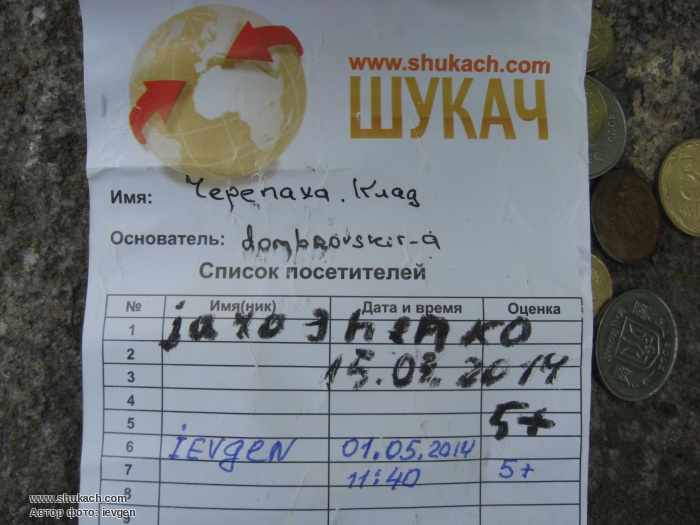 www.shukach.com
ШУКАЧ
Имя: Черепаха. Клад
Основатель: dombrovskir-a
Список посетителей
№ Имя(ник) Дата и время Оценка
1
2
3 2014
4
5 5+
6 IEVgEN 01.05.2014
7 11:40 5+
8
9
www.shukach.com
Автор фото: ievgen